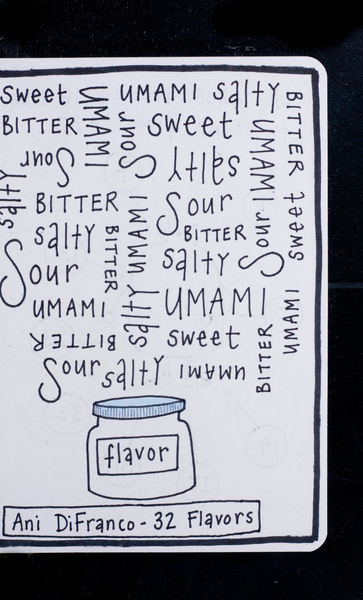 sweet UMAMI UMAMI salty BITTER
BITTER sour sweet UMAMI
sour salty
salty BITTER UMAMI sour sour sweet
salty BITTER BITTER
sour salty
UMAMI salty UMAMI UMAMI
BITTER sweet BITTER
sour salty UMAMI
flavor
Ani DiFranco - 32 Flavors